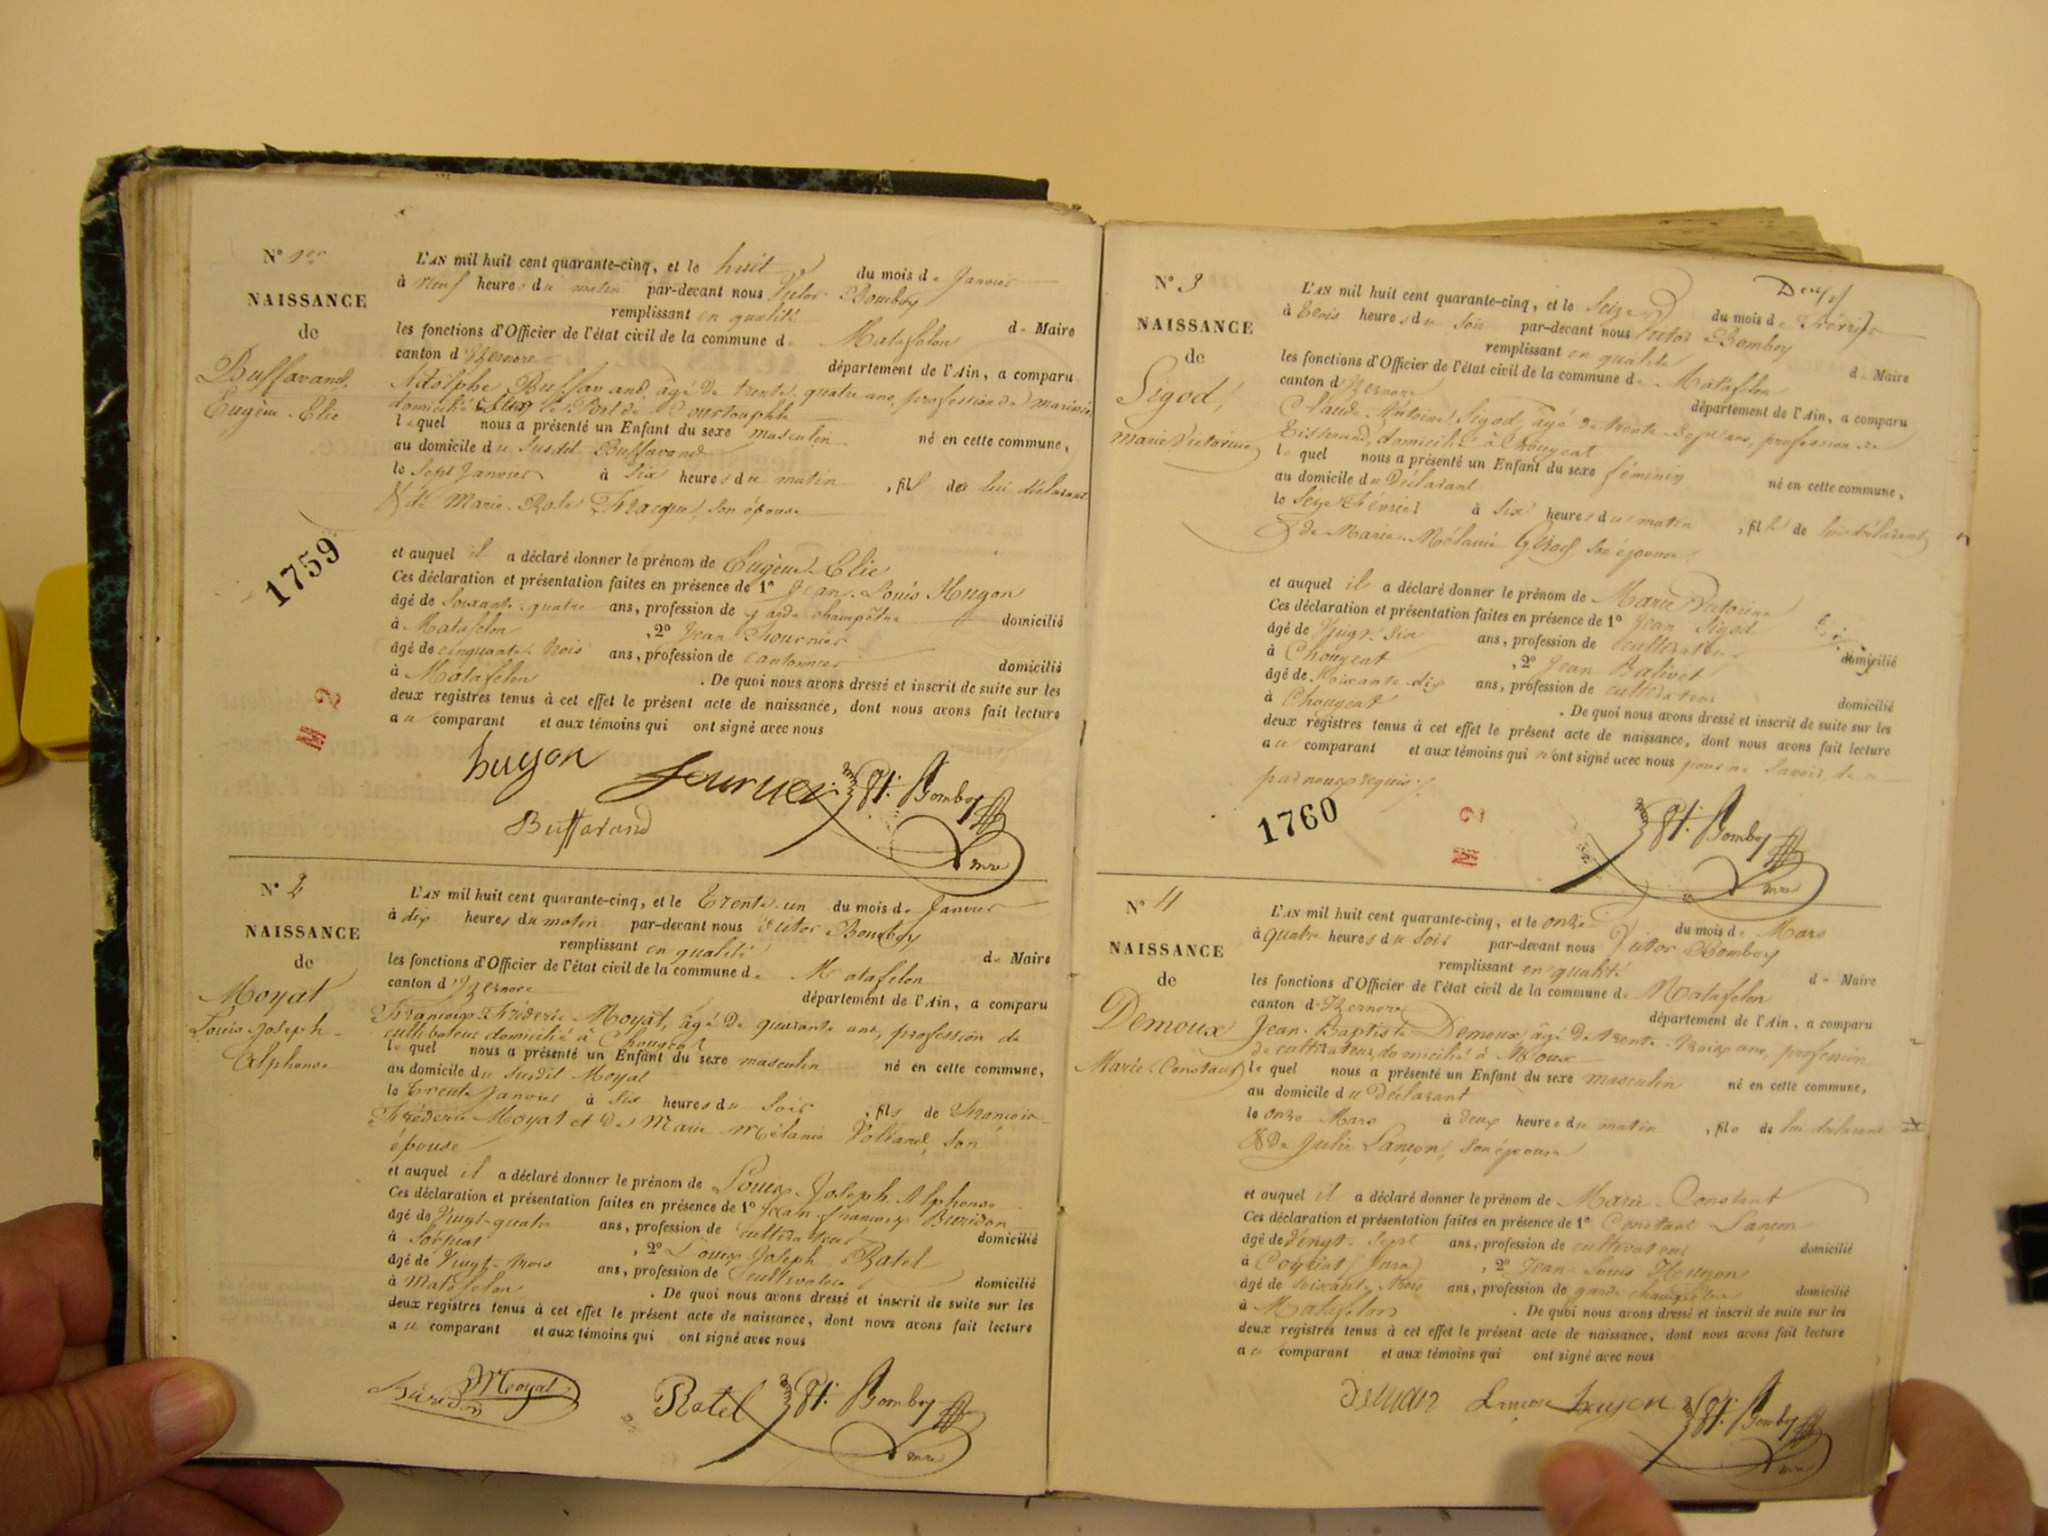 N° 1er
NAISSANCE
de
Buffavand
Eugène Elie
L'AN mil huit cent quarante-cinq, et le huit du mois de Janvier
à neuf heures du matin par-devant nous Victor Bomboy
remplissant en qualité de Maire
les fonctions d'Officier de l'état civil de la commune de Matafelon
canton d'Izernore département de l'Ain, a comparu
Adolphe Buffavand, âgé de trente quatre ans, profession de marinier
domicilié
le quel nous a présenté un Enfant du sexe masculin né en cette commune,
au domicile du susdit Buffavand
le sept Janvier à six heures du matin, fils de lui déclarant
& de Marie Rose son épouse
et auquel il a déclaré donner le prénom de Eugène Elie
Ces déclaration et présentation faites en présence de 1° Jean Louis Hugon
âgé de soixante quatre ans, profession de garde champêtre domicilié
à Matafelon, 2° Jean Fournier
âgé de cinquante trois ans, profession de cantonnier domicilié
à Matafelon. De quoi nous avons dressé et inscrit de suite sur les
deux registres tenus à cet effet le présent acte de naissance, dont nous avons fait lecture
au comparant et aux témoins qui ont signé avec nous
1759
2
hugon fournier Vt. Bomboy
Buffavand
mre
N° 2
NAISSANCE
de
Moyat
Louis Joseph
Alphonse
L'AN mil huit cent quarante-cinq, et le trente un du mois de Janvier
à dix heures du matin par-devant nous Victor Bomboy
remplissant en qualité de Maire
les fonctions d'Officier de l'état civil de la commune de Matafelon
canton d'Izernore département de l'Ain, a comparu
François Fréderic Moyat, âgé de quarante ans, profession de
cultivateur domicilié à Chougeat
le quel nous a présenté un Enfant du sexe masculin né en cette commune,
au domicile du susdit Moyat
le trente Janvier à six heures du soir, fils de François
Fréderic Moyat et de Marie Mélanie son
épouse
et auquel il a déclaré donner le prénom de Louis Joseph Alphonse
Ces déclaration et présentation faites en présence de 1° Jean françois Buridon
âgé de vingt-quatre ans, profession de cultivateur domicilié
à, 2° Louis Joseph Ratel
âgé de vingt-trois ans, profession de cultivateur domicilié
à Matafelon. De quoi nous avons dressé et inscrit de suite sur les
deux registres tenus à cet effet le présent acte de naissance, dont nous avons fait lecture
au comparant et aux témoins qui ont signé avec nous
Buridon Moyat Ratel Vt. Bomboy
mre
Deux
N° 3
NAISSANCE
de
Sigod,
Marie Victorine
L'AN mil huit cent quarante-cinq, et le seize du mois de Février
à trois heures du soir par-devant nous Victor Bomboy
remplissant en qualité de Maire
les fonctions d'Officier de l'état civil de la commune de Matafelon
canton d'Izernore département de l'Ain, a comparu
Claude Antoine Sigod, âgé de trente-sept ans, profession de
tisserand, domicilié à Chougeat
le quel nous a présenté un Enfant du sexe féminin né en cette commune,
au domicile du déclarant
le seize Février à six heures du matin, fille de lui déclarant
& de Marie Mélanie son épouse
et auquel il a déclaré donner le prénom de Marie Victorine
Ces déclaration et présentation faites en présence de 1° Jean Sigod
âgé de vingt six ans, profession de cultivateur domicilié
à Chougeat, 2° Jean Balivet
âgé de soixante-dix ans, profession de cultivateur domicilié
à Chougeat. De quoi nous avons dressé et inscrit de suite sur les
deux registres tenus à cet effet le présent acte de naissance, dont nous avons fait lecture
au comparant et aux témoins qui n'ont signé avec nous pour ne savoir, de ce
par nous requis.
1760
2
Vt. Bomboy
mre
N° 4
NAISSANCE
de
Demoux
Marie Constant
L'AN mil huit cent quarante-cinq, et le onze du mois de Mars
à quatre heures du soir par-devant nous Victor Bomboy
remplissant en qualité de Maire
les fonctions d'Officier de l'état civil de la commune de Matafelon
canton d'Izernore département de l'Ain, a comparu
Jean-Baptiste Demoux, âgé de trente-trois ans, profession
de cultivateur, domicilié à
le quel nous a présenté un Enfant du sexe masculin né en cette commune,
au domicile du déclarant
le onze Mars à deux heures du matin, fils de lui déclarant
& de Julie Lançon, son épouse
et auquel il a déclaré donner le prénom de Marie Constant
Ces déclaration et présentation faites en présence de 1° Constant Lançon
âgé de vingt-sept ans, profession de cultivateur domicilié
à Coyriat (Jura), 2° Jean Louis Hugon
âgé de soixante trois ans, profession de garde champêtre domicilié
à Matafelon. De quoi nous avons dressé et inscrit de suite sur les
deux registres tenus à cet effet le présent acte de naissance, dont nous avons fait lecture
au comparant et aux témoins qui ont signé avec nous
Lançon hugon Vt. Bomboy
mre